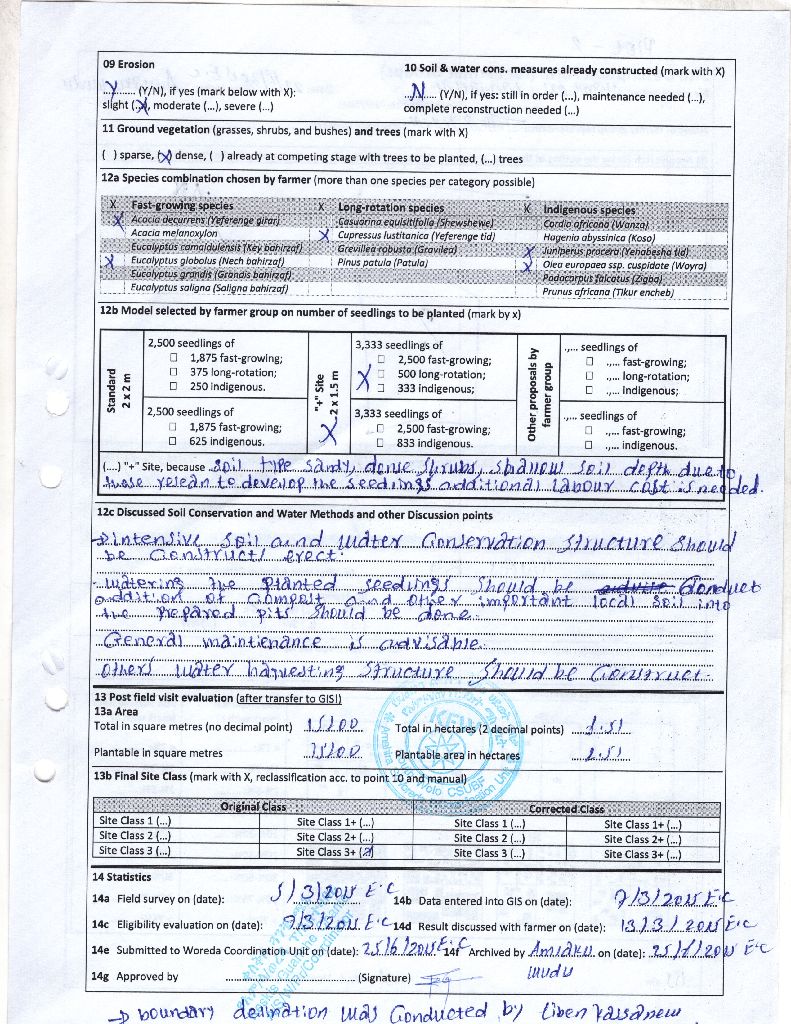 09 Erosion
10 Soil & water cons. measures already constructed (mark with X)
Y (Y/N), if yes (mark below with X):
N (Y/N), if yes: still in order (...), maintenance needed (...),
slight (X), moderate (...), severe (...)
complete reconstruction needed (...)
11 Ground vegetation (grasses, shrubs, and bushes) and trees (mark with X)
( ) sparse, (X) dense, ( ) already at competing stage with trees to be planted, (...) trees
12a Species combination chosen by farmer (more than one species per category possible)
X Fast-growing species X Long-rotation species X Indigenous species
X Acacia decurrens (Yeferenge girar) Casuarina equisitifolia (Shewshewe) Cordia africana (Wanza)
Acacia melanoxylon X Cupressus lustitanica (Yeferenge tid) Hagenia abyssinica (Koso)
Eucalyptus camaldulensis (Key bahirzaf) Grevillea robusta (Gravilea) X Juniperus procera (Yehabesha tid)
X Eucalyptus globolus (Nech bahirzaf) Pinus patula (Patula) X Olea europaea ssp. cuspidate (Woyra)
Eucalyptus grandis (Grandis bahirzaf) Podocarpus falcatus (Zigba)
Eucalyptus saligna (Saligna bahirzaf) Prunus africana (Tikur encheb)
12b Model selected by farmer group on number of seedlings to be planted (mark by x)
Standard
2 x 2 m
2,500 seedlings of
☐ 1,875 fast-growing;
☐ 375 long-rotation;
☐ 250 indigenous.
2,500 seedlings of
☐ 1,875 fast-growing;
☐ 625 indigenous.
"+" Site
X 2 x 1.5 m
3,333 seedlings of
☐ 2,500 fast-growing;
X ☐ 500 long-rotation;
☐ 333 indigenous;
3,333 seedlings of
☐ 2,500 fast-growing;
☐ 833 indigenous.
Other proposals by
farmer group
.,... seedlings of
☐ .,... fast-growing;
☐ .,... long-rotation;
☐ .,... indigenous;
.,... seedlings of
☐ .,... fast-growing;
☐ .,... indigenous.
(...) "+" Site, because soil type sandy, dense shrubs, shallow soil depth due to
those to develop the seedlings additional labour cost is needed.
12c Discussed Soil Conservation and Water Methods and other Discussion points
→ intensive soil and water Conservation structure should
be Construct/ erect.
- watering the planted seedlings should be Conduct
addition of Compost and other important local soil into
the prepared pits should be done.
General maintienance is advisable.
Others water harvesting structure should be Construct.
13 Post field visit evaluation (after transfer to GIS!)
13a Area
Total in square metres (no decimal point) 15100 Total in hectares (2 decimal points) 1.51
Plantable in square metres 15100 Plantable area in hectares 1.51
13b Final Site Class (mark with X, reclassification acc. to point 10 and manual)
Original Class Corrected Class
Site Class 1 (...) Site Class 1+ (...) Site Class 1 (...) Site Class 1+ (...)
Site Class 2 (...) Site Class 2+ (...) Site Class 2 (...) Site Class 2+ (...)
Site Class 3 (...) Site Class 3+ (X) Site Class 3 (...) Site Class 3+ (...)
14 Statistics
14a Field survey on (date): 5/3/2015 E.C 14b Data entered into GIS on (date): 7/3/2015 E.C
14c Eligibility evaluation on (date): 9/3/2015 E.C 14d Result discussed with farmer on (date): 13/3/2015 E.C
14e Submitted to Woreda Coordination Unit on (date): 25/6/2015 E.C 14f Archived by on (date): 2015 E.C
14g Approved by (Signature)
→ boundary was Conducted by
KFW
Wolo CSUBF